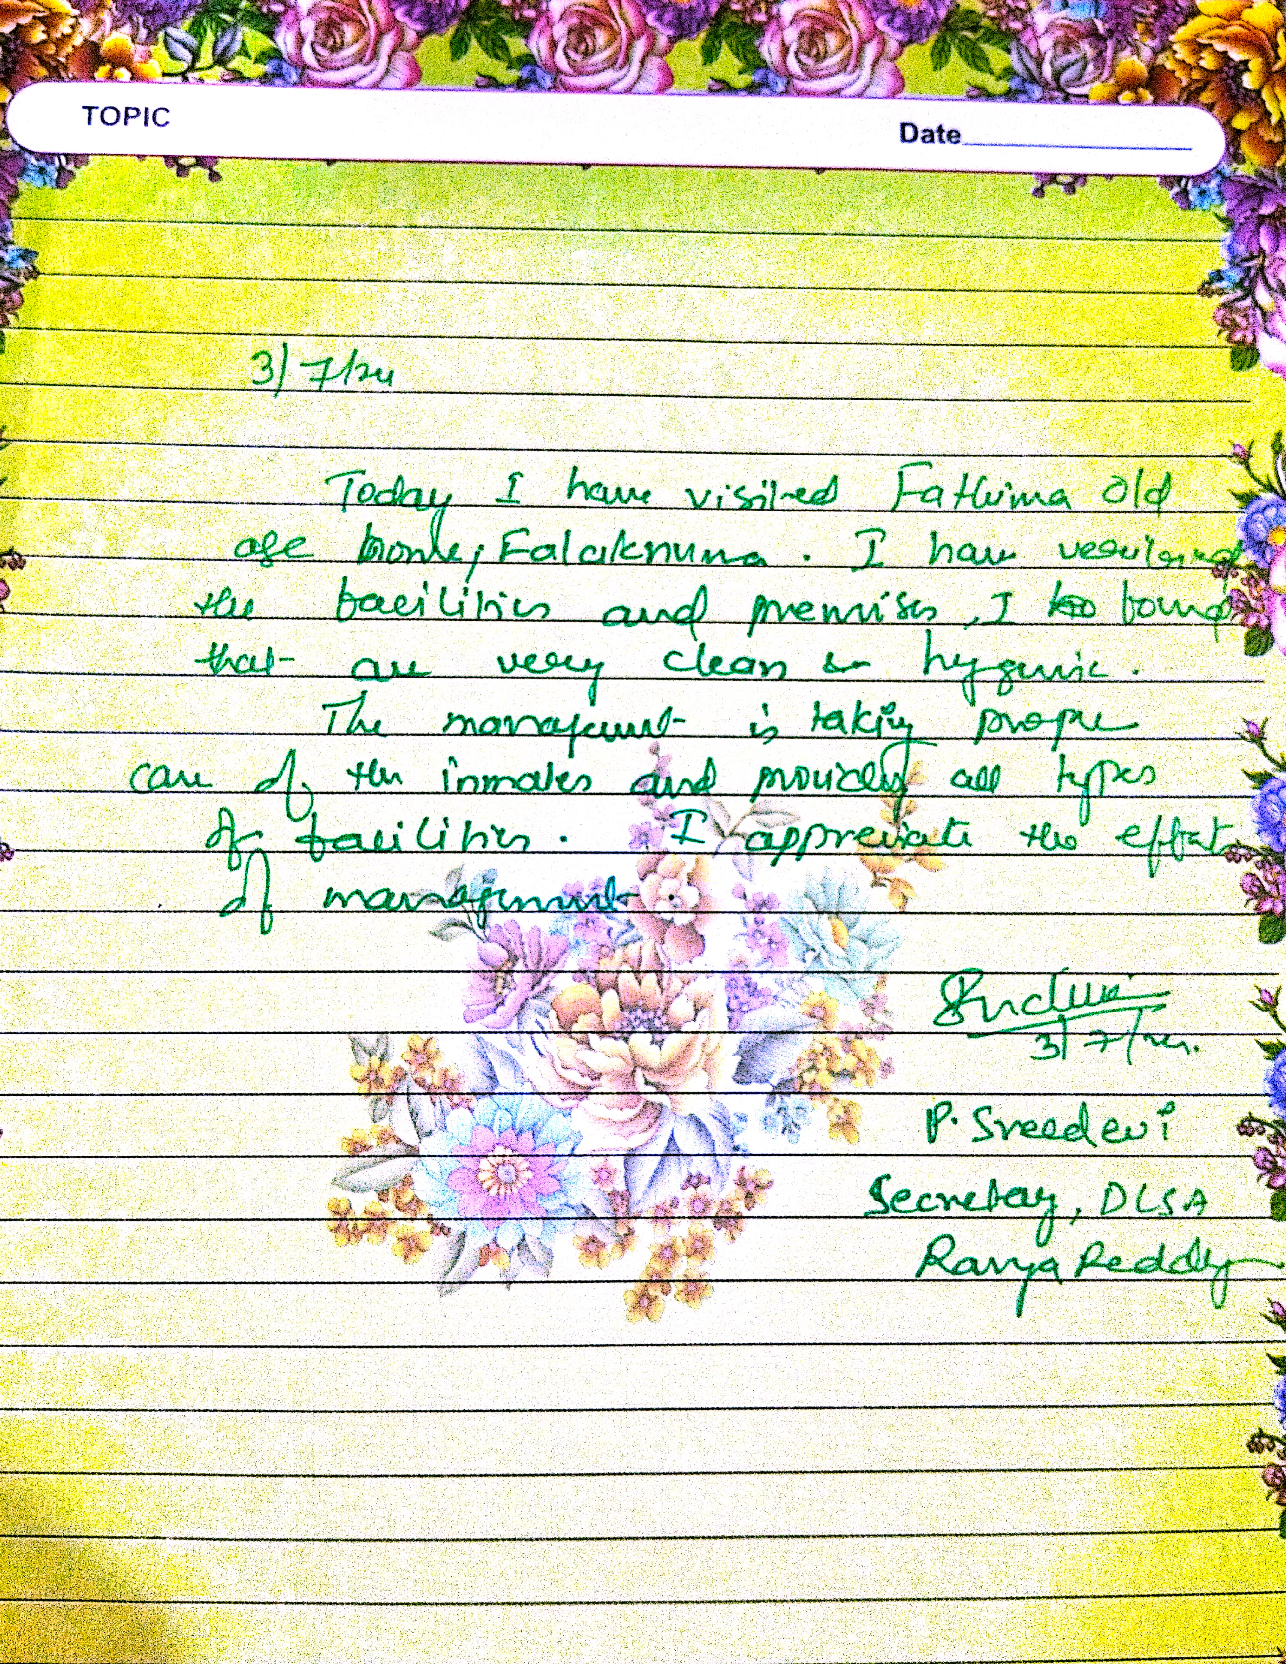 TOPIC
Date
3/7/24
Today I have visited Fathima old
age home, Falaknuma. I have
the facilities and premises, I found
that are very clean & hygenic.
The management is taking proper
care of the inmates and providing all types
of facilities. I appreciate the efforts
of management
3/7/24.
P. Sreedevi
Secretary, DLSA
Ranga Reddy